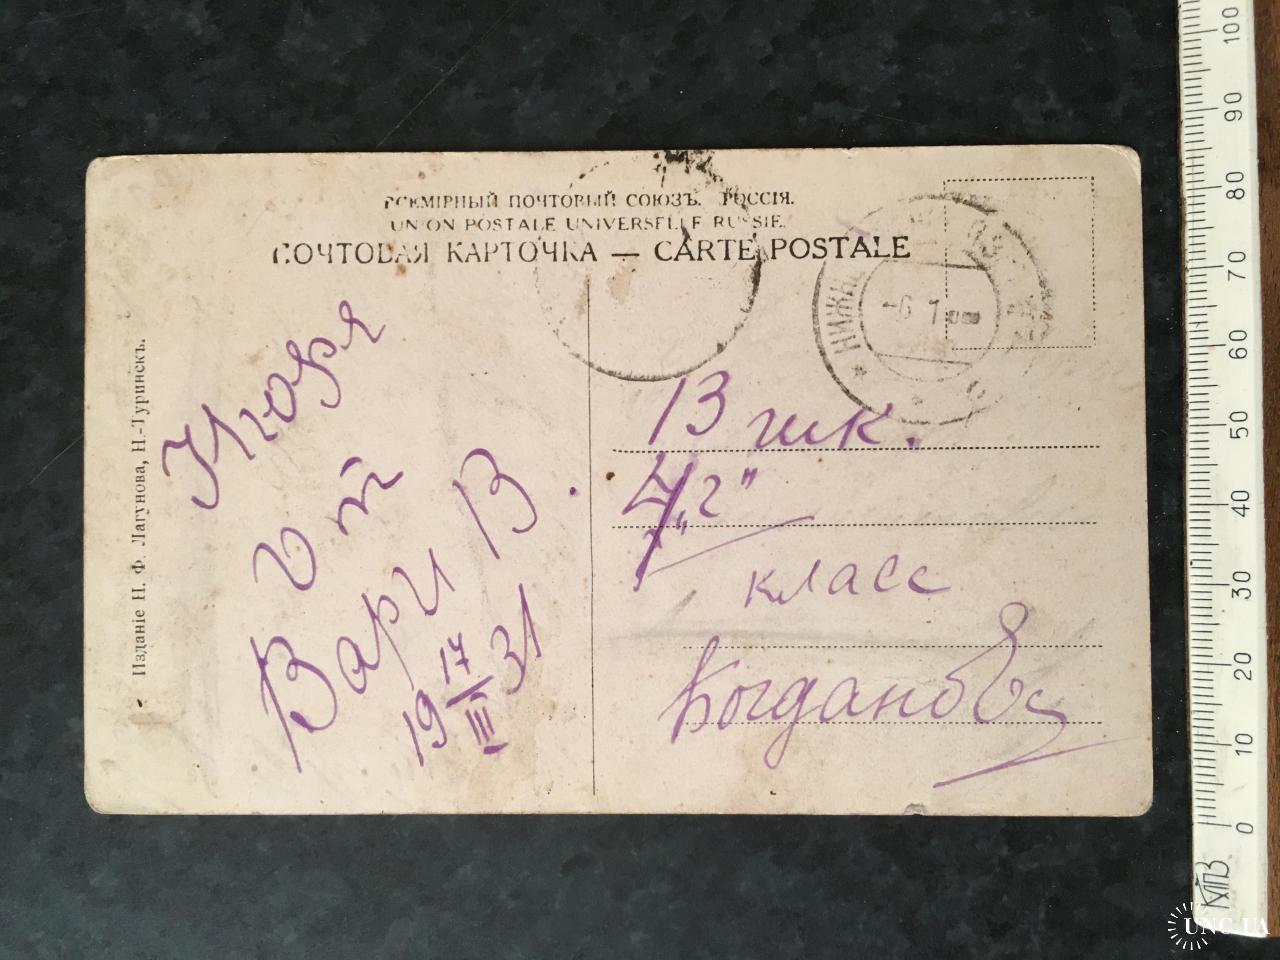 ВСЕМІРНЫЙ ПОЧТОВЫЙ СОЮЗЪ. РОССІЯ.
UNION POSTALE UNIVERSELLE RUSSIE.
ПОЧТОВАЯ КАРТОЧКА — CARTE POSTALE
Изданіе Н. Ф. Лагунова, Н.-Туринскъ.
Игоря
от
Вари В.
19 17/III 31
13 шк.
4 „г"
класс
Богданов
НИЖН
-6 1
100
90
80
70
60
50
40
30
20
10
0
UNC.UA